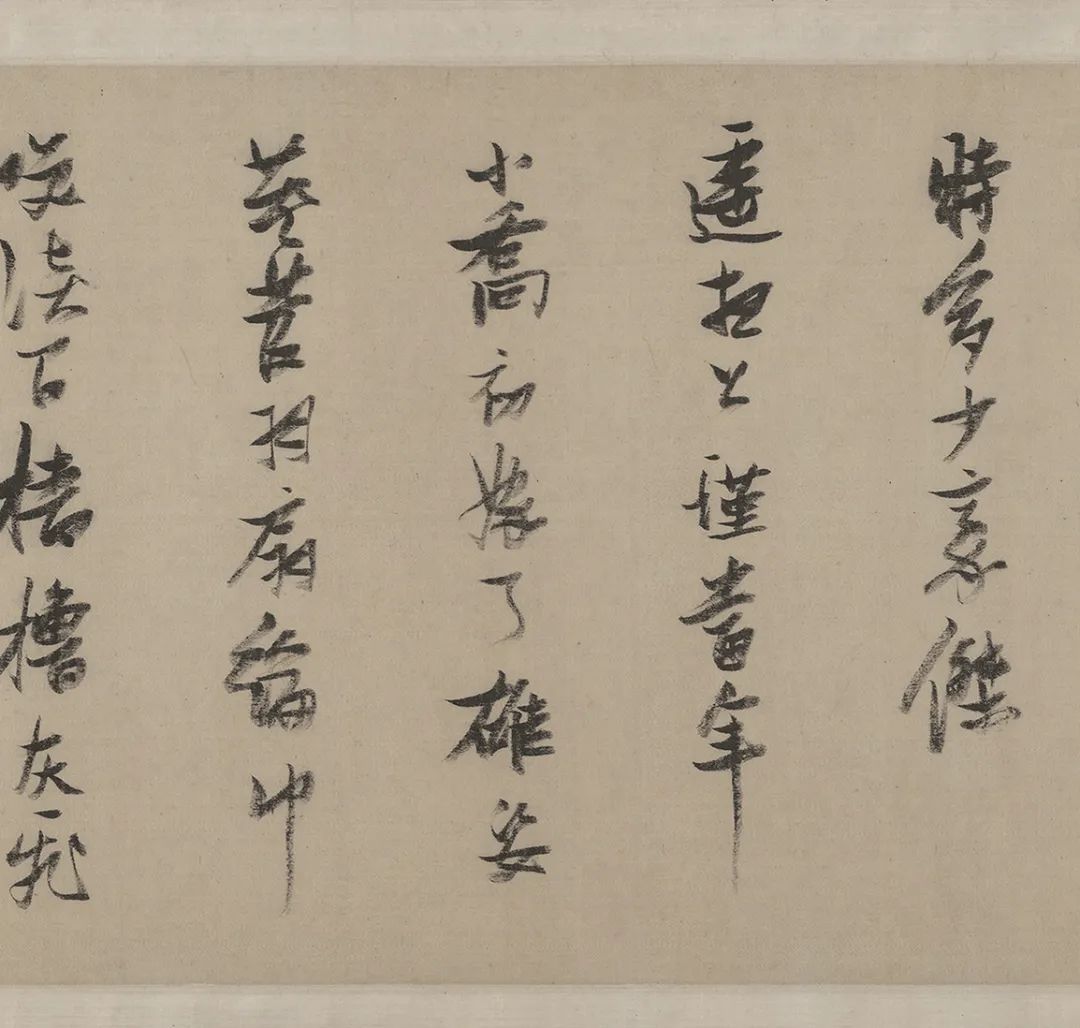 時多少豪傑
遙想公瑾當年
小喬初嫁了雄姿
英羽扇綸巾
咲談間檣櫓灰飛